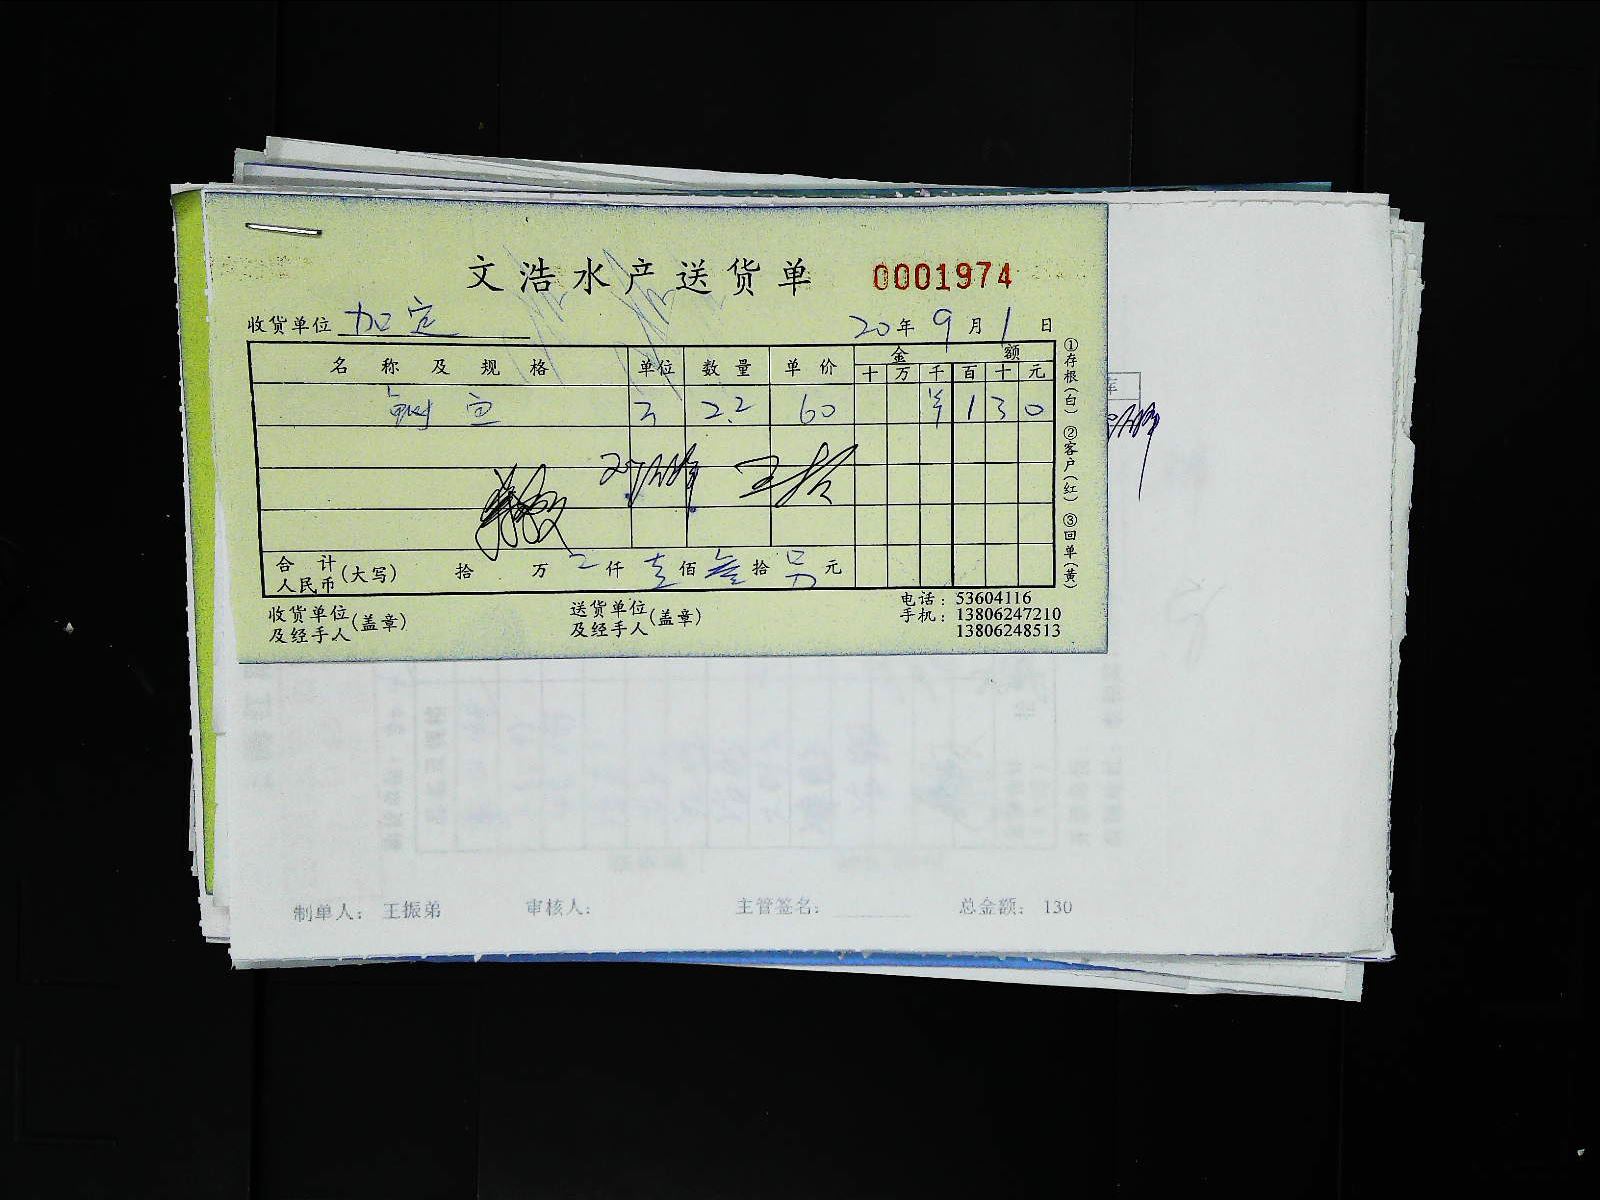 文浩水产送货单 0001974
收货单位 加定 20年9月1日
名称及规格 单位 数量 单价 金额
十 万 千 百 十 元
2.2 60 ¥ 1 3 0
王拾
合计人民币(大写) 拾 万 仟 壹佰 叁拾 另元
收货单位及经手人(盖章) 送货单位及经手人(盖章)
电话：53604116
手机：13806247210
13806248513
①存根(白) ②客户(红) ③回单(黄)
制单人： 王振弟 审核人： 主管签名： 总金额： 130